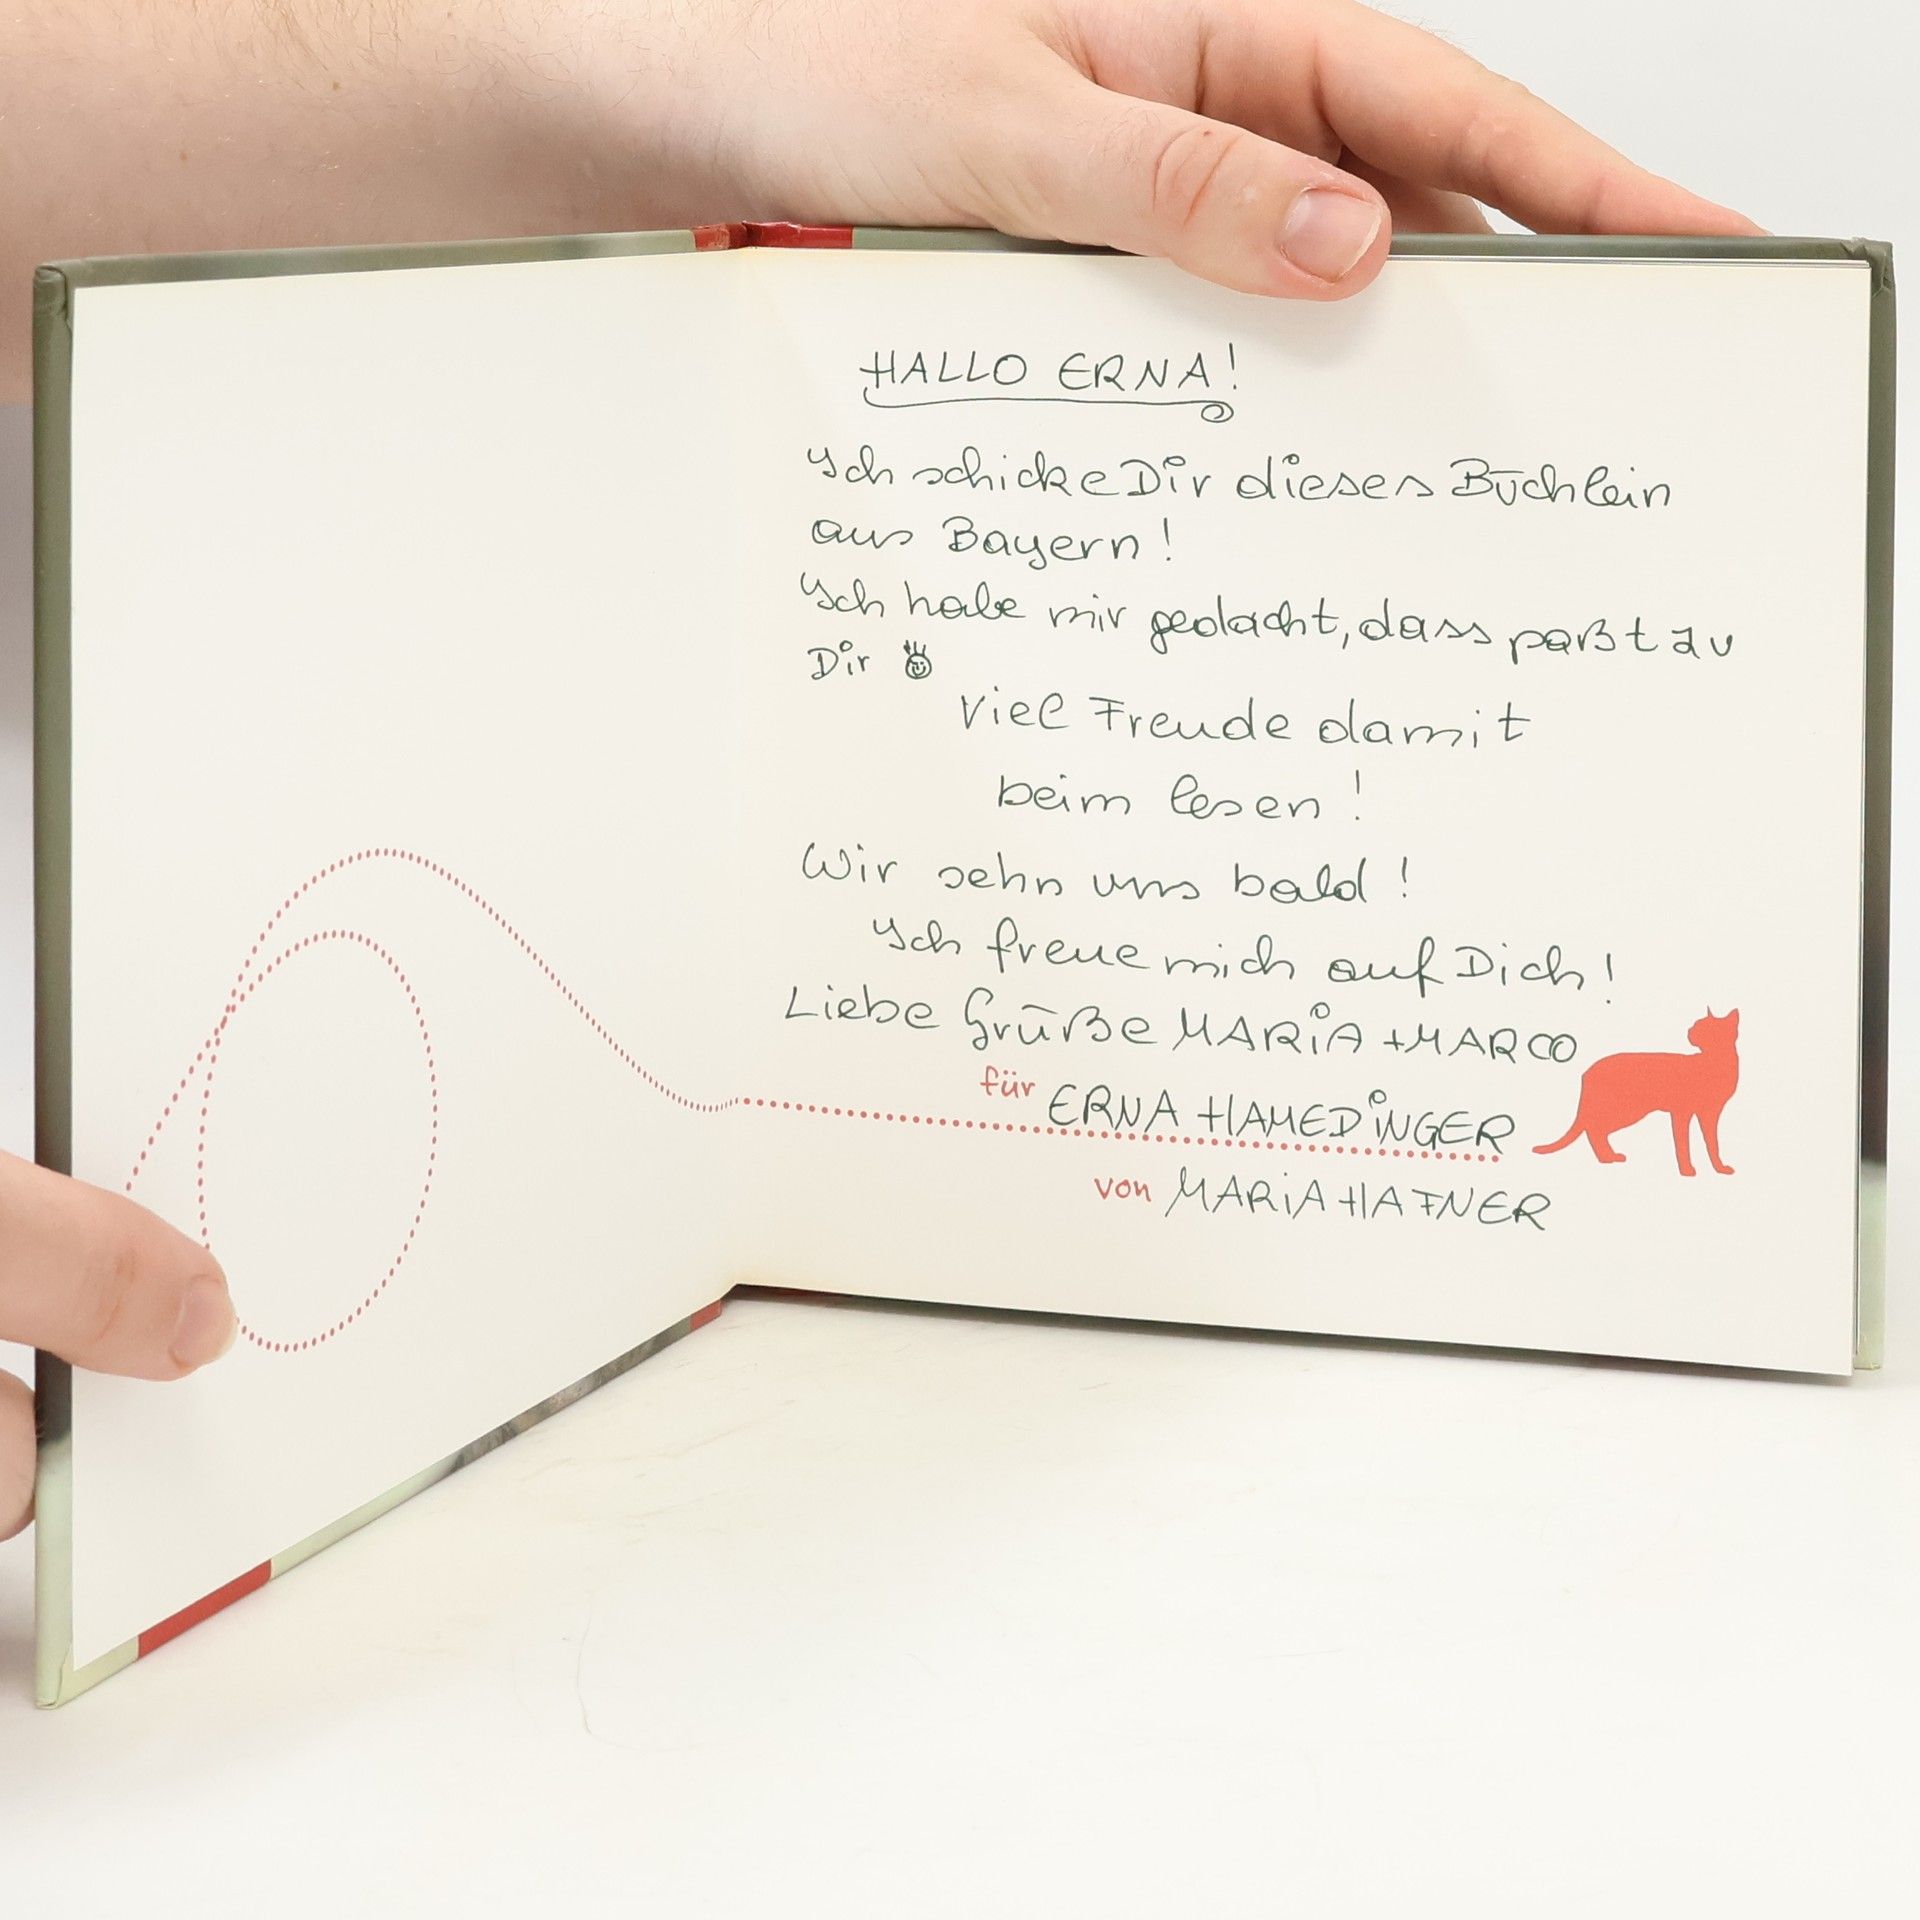 HALLO ERNA!
Ich schicke Dir dieses Büchlein
aus Bayern!
Ich habe mir gedacht, dass paßt zu
Dir
Viel Freude damit
beim lesen!
Wir sehn uns bald!
Ich freue mich auf Dich!
Liebe Grüße MARiA + MARCO
für ERNA HAMEDiNGER
von MARiA HAFNER